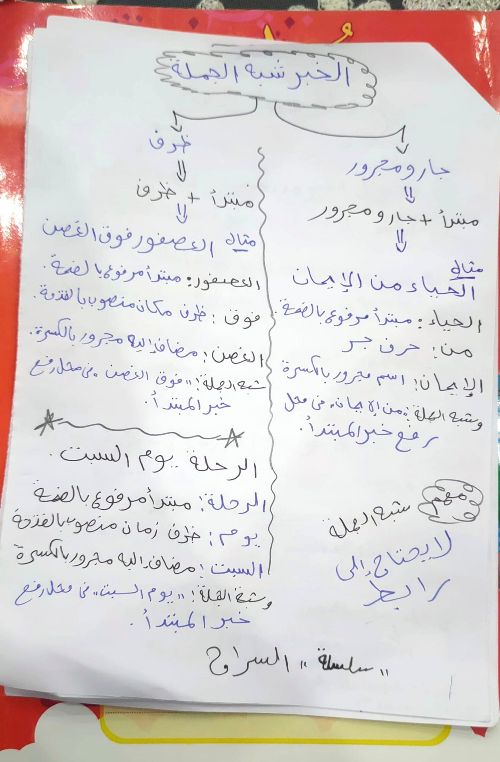 الخبر شبه الجملة
جار ومجرور
مبتدأ + جار ومجرور
مثال
الحياء من الإيمان
الحياء: مبتدأ مرفوع بالضمة.
من: حرف جر
الإيمان: اسم مجرور بالكسرة
وشبه الجملة: "من الإيمان" في محل
رفع خبر المبتدأ.
مهم شبه الجملة
لا يحتاج إلى
رابط
ظرف
مبتدأ + ظرف
مثال العصفور فوق الغصن
العصفور: مبتدأ مرفوع بالضمة.
فوق: ظرف مكان منصوب بالفتحة.
الغصن: مضاف إليه مجرور بالكسرة.
شبه الجملة: "فوق الغصن" في محل رفع
خبر المبتدأ.
الرحلة يوم السبت.
الرحلة: مبتدأ مرفوع بالضمة
يوم: ظرف زمان منصوب بالفتحة
السبت: مضاف إليه مجرور بالكسرة
وشبة الجملة: "يوم السبت" في محل رفع
خبر المبتدأ.
"سلسلة" السراج